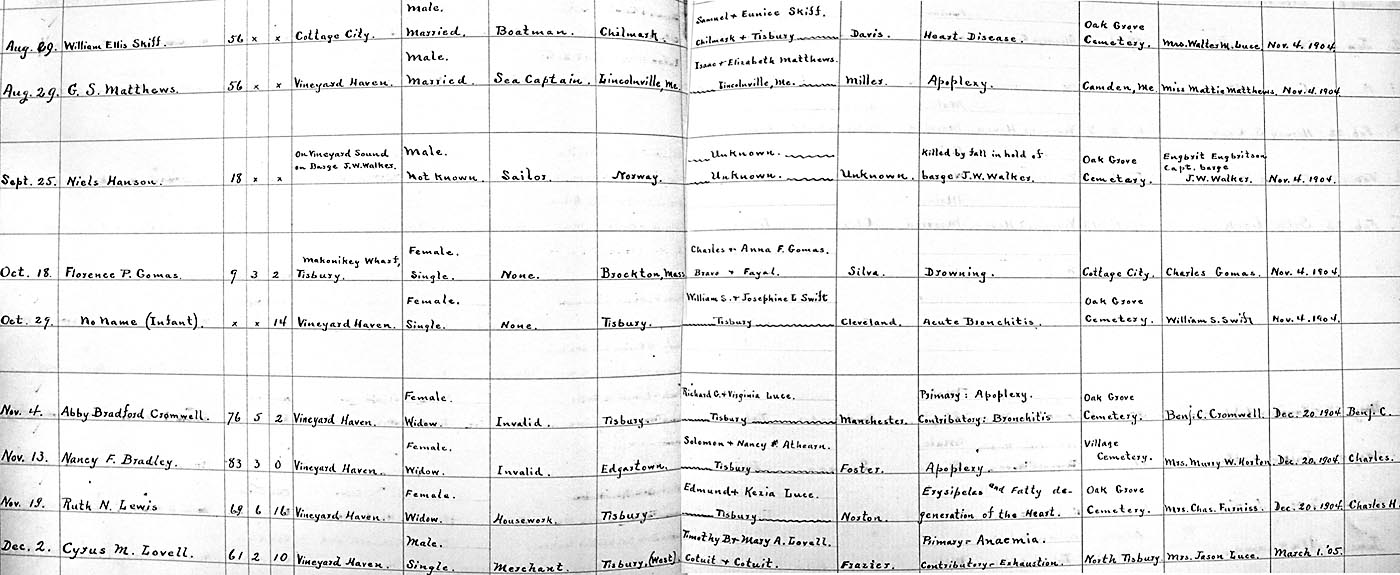 Male. Samuel & Eunice Skiff. Oak Grove
Aug. 29. William Ellis Skiff. 56 x x Cottage City. Married. Boatman. Chilmark. Chilmark & Tisbury Davis. Heart Disease. Cemetery. Mrs. Walter M. Luce. Nov. 4. 1904.
Male. Isaac & Elizabeth Matthews.
Aug. 29. G. S. Matthews. 56 x x Vineyard Haven. Married. Sea Captain. Lincolnville, Me. Lincolnville, Me. Miller. Apoplexy. Camden, Me. Miss Mattie Matthews. Nov. 4. 1904.
On Vineyard Sound Male. Unknown. Killed by fall in hold of Oak Grove Engbrit Engbritson
on Barge J.W. Walker. Capt. barge
Sept. 25. Niels Hanson. 18 x x Not Known. Sailor. Norway. Unknown. Unknown. barge J.W. Walker. Cemetary. J.W. Walker. Nov. 4. 1904.
Makonikey Wharf, Female. Charles & Anna F. Gomas.
Oct. 18. Florence P. Gomas. 9 3 2 Tisbury. Single. None. Brockton, Mass Bravo & Fayal. Silva. Drowning. Cottage City. Charles Gomas. Nov. 4. 1904.
Female. William S. & Josephine L Swift Oak Grove
Oct. 29. No Name (Infant). x x 14 Vineyard Haven. Single. None. Tisbury. Tisbury Cleveland. Acute Bronchitis. Cemetery. William S. Swift Nov. 4. 1904.
Female. Richard G. & Virginia Luce. Primary: Apoplexy. Oak Grove
Nov. 4. Abby Bradford Cromwell. 76 5 2 Vineyard Haven. Widow. Invalid. Tisbury. Tisbury Manchester. Contributory: Bronchitis Cemetery. Benj. C. Cromwell. Dec. 20. 1904 Benj. C.
Female. Solomon & Nancy Athearn. Village
Nov. 13. Nancy F. Bradley. 83 3 0 Vineyard Haven. Widow. Invalid. Edgartown. Tisbury Foster. Apoplexy. Cemetery. Mrs. Murry W. Horton. Dec. 20. 1904. Charles.
Female. Edmund & Kezia Luce. Erysipelas and Fatty de- Oak Grove
Nov. 19. Ruth N. Lewis 69 6 16 Vineyard Haven. Widow. Housework. Tisbury. Tisbury Norton. generation of the Heart. Cemetery. Mrs. Chas. Furniss. Dec. 20. 1904 Charles H.
Male. Timothy B & Mary A. Lovell. Primary- Anaemia.
Dec. 2. Cyrus M. Lovell. 61 2 10 Vineyard Haven. Single. Merchant. Tisbury, (West). Cotuit & Cotuit. Frazier. Contributory- Exhaustion. North Tisbury Mrs. Jason Luce. March 1. '05.